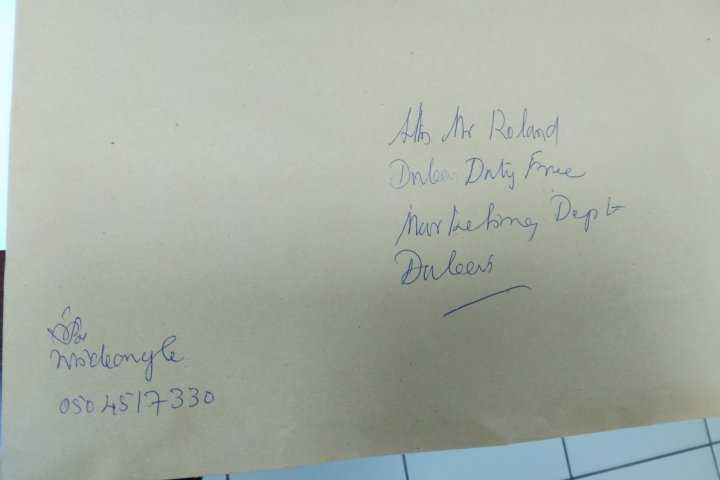 Attn Mr Roland
Dubai Duty Free
Marketing Dept
Dubai
Wideangle
050 4517330